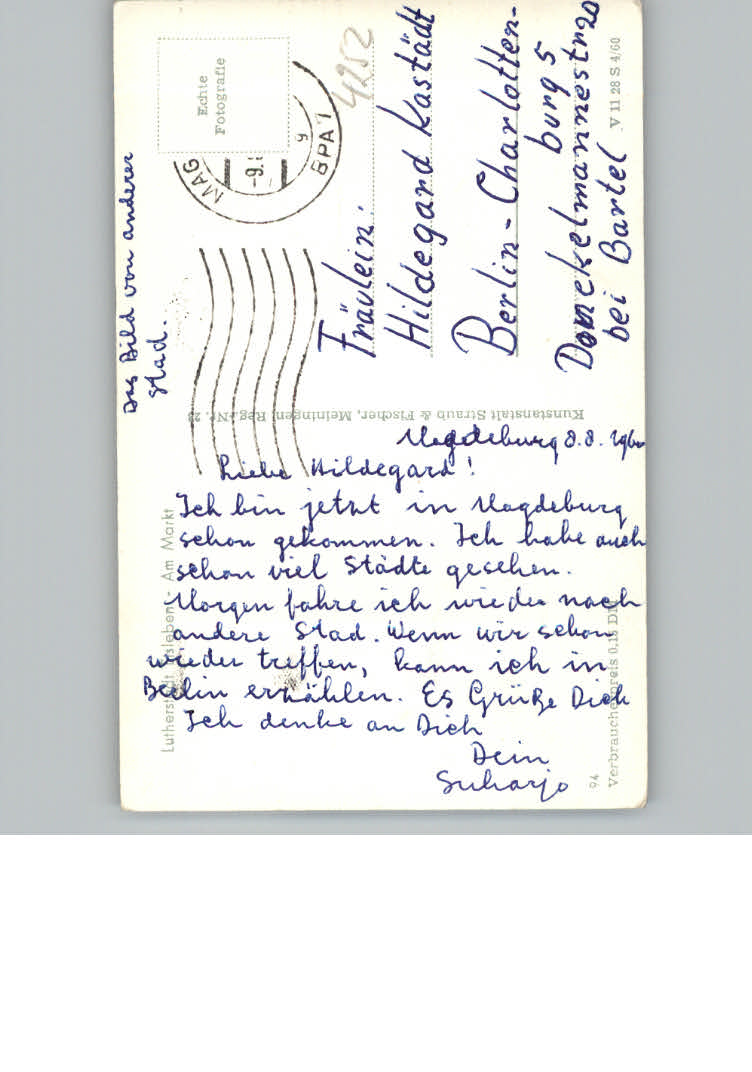 Magdeburg 8.8. 1960
Liebe Hildegard!
Ich bin jetzt in Magdeburg
schon gekommen. Ich habe auch
schon viel Städte gesehen.
Morgen fahre ich wieder nach
andere Stad. Wenn wir schon
wieder treffen, kann ich in
Berlin erzählen. Es Grüße Dich
Ich denke an Dich
Dein
Suharjo
Das Bild von anderer
Stad.
Fräulein:
Hildegard Kastädt
Berlin-Charlotten-
burg 5
Danckelmannestr 20
bei Bartel
4252
Echte
Fotografie
MAG
-9.
9
BPA 1
Lutherstadt Eisleben - Am Markt
Kunstanstalt Straub & Fischer, Meiningen, Reg.-Nr. 23
V 11 28 S 4/60
94
Verbraucherpreis 0,15 DM